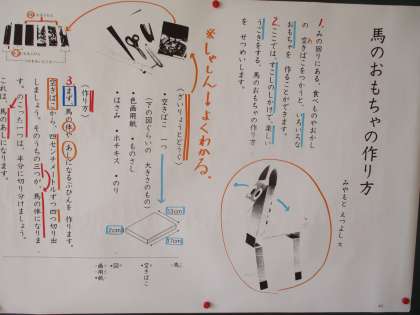 馬のおもちゃの作り方
みやもと えつよし 文
1. みの回りにある、食べものやおかし
の空きばこをつかうと、いろいろな
おもちゃを作ることができます。
2. ここでは、すこしのしかけで、楽しい
うごきをする、馬のおもちゃの作り方
をせつめいします。
※しゃしん→よくわかる。
〈ざいりょうとどうぐ〉
・空きばこ 一つ
(下の図ぐらいの 大きさのもの)
・色画用紙 ・ものさし
・はさみ ・ホチキス ・のり
13cm
17cm
2cm
〈作り方〉
3. まず、馬の体や あしになるぶひんを作ります。
空きばこから、四センチメートルずつ四つ切り出
しましょう。そのうちの三つが、馬の体になりま
す。のこった一つは、半分に切り分けましょう。
これは、馬のあしになります。
・馬
・空きばこ
・図
・画用紙